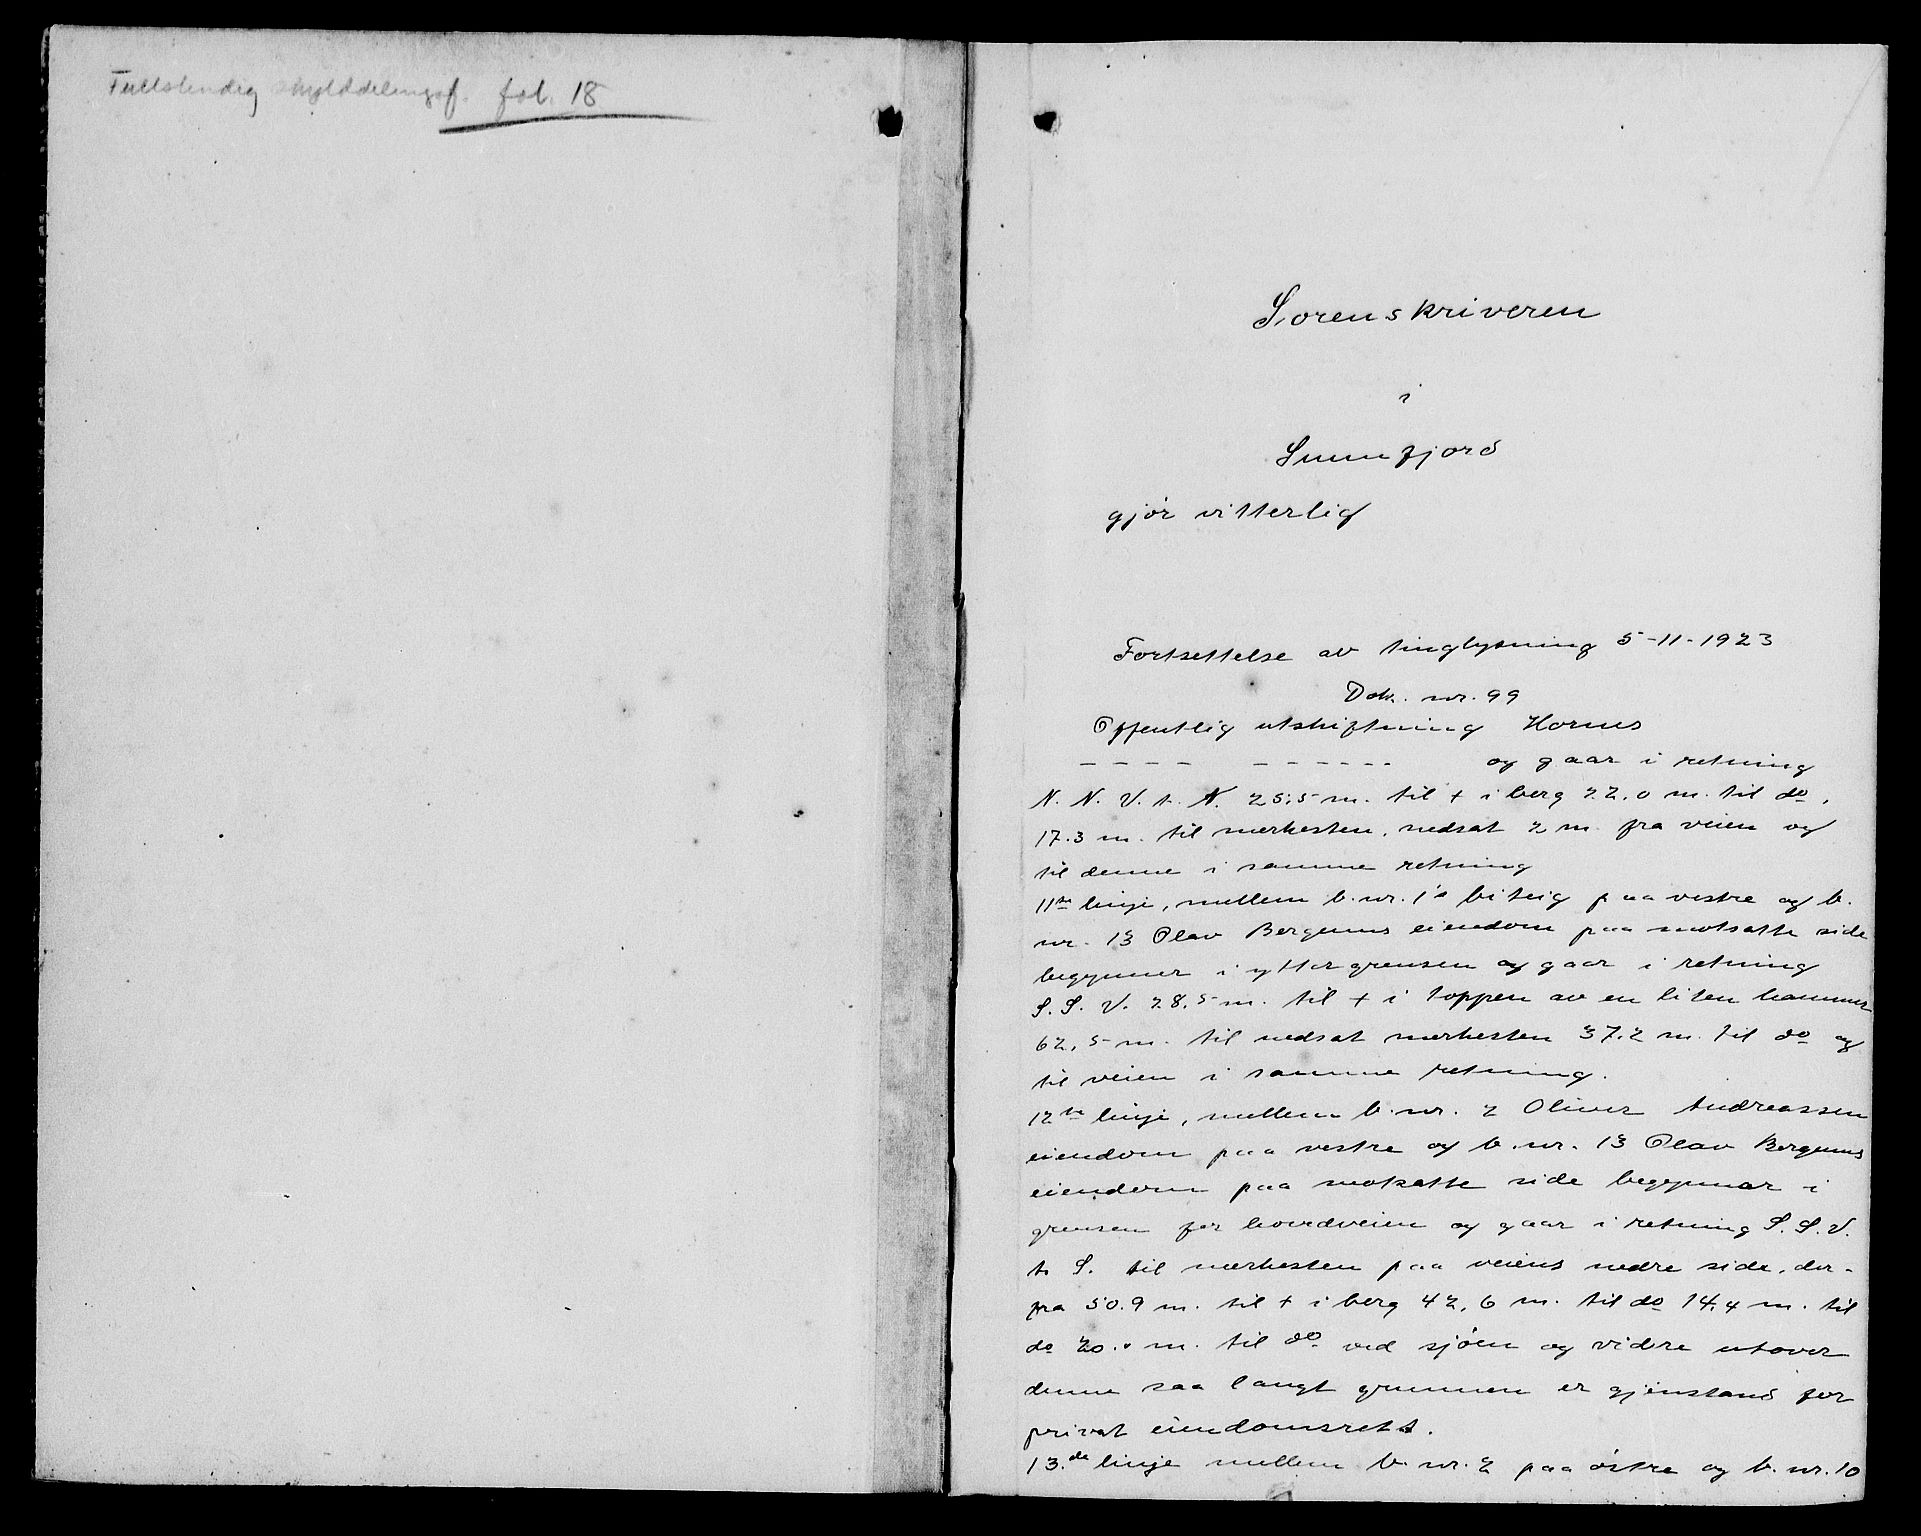 Fullstendig skylddelingsf. fol. 18
Sorenskriveren
i
Sunnfjord
gjør vitterlig
Fortsettelse av tinglysning 5-11-1923
Dok. nr. 99
Offentlig utskiftning Hornes
---- ------ og gaar i retning
N. N. V. t. N. 25,5 m. til + i berg 22.0 m. til do,
17.3 m. til merkesten, nedsat 2 m fra veien og
til denne i samme retning
11te linje, mellem b.nr. 1's biteig paa vestre og b.
nr. 13 Olav Bergums eiendom paa motsatte side
begynner i yttergrensen og gaar i retning
S. S. V. 28,5 m. til + i toppen av en liten hammer
62,5 m. til nedsat merkesten 37.2 m. til do og
til veien i samme retning.
12te linje, mellem b.nr. 2 Oliver Andreassen
eiendom paa vestre og b.nr. 13 Olav Bergums
eiendom paa motsatte side begynner i
grensen for hovedveien og gaar i retning S. S. V.
t. S. til merkesten paa veiens nedre side, der-
fra 50.9 m. til + i berg 42,6 m. til do 14,4 m. til
do 20.0 m. til do ved sjøen og videre utover
denne saa langt grunnen er gjenstand for
privat eiendomsrett.
13.de linje mellem b.nr. 2 paa østre og b.nr. 10